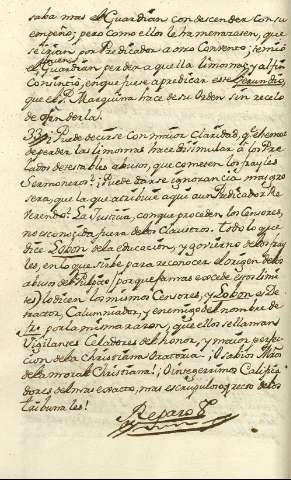 saba mas el Guardian condescender con su
empeño; pero como ellos le hamenazasen, que
se irian por Predicador a otro Convento; temió
el Guardian perder aquella limosna; y al fin
Convinció, en que fuese a predicar este Gerundio,
que el P. Marquina hace de su Orden sin recelo
de ofenderla.
33. Puede decirse con maior Claridad, que el
de perder las limosnas hace disimular a los Pre
lados detestables abusos, que cometen los frayles
Sermoneros? Puede darse ignorancia mas gro
sera, que la que atribuie aqui a un Predicador Re
verendo? La Justicia, con que proceden los Censores,
no es conocida fuera de los Claustros. Todo lo que
dice Lobon de la educacion, y govierno de los fray
les, en lo que sirbe para reconocer el origen de los
abusos del Pulpito (porque jamas excede estos limi
tes) lo dicen los mismos Censores, y Lobon es De
tractor, Calumniador, y enemigo del nombre de
por la misma razon, que ellos se llaman
Vigilantes Celadores del honor, y maior perfec
cion de la Christiana Oratoria! O sabios Mros
de la moral Christiana! O integerrimos Califica
dores del mas exacto, mas escrupuloso, y recto de los
tribunales!
Reparo